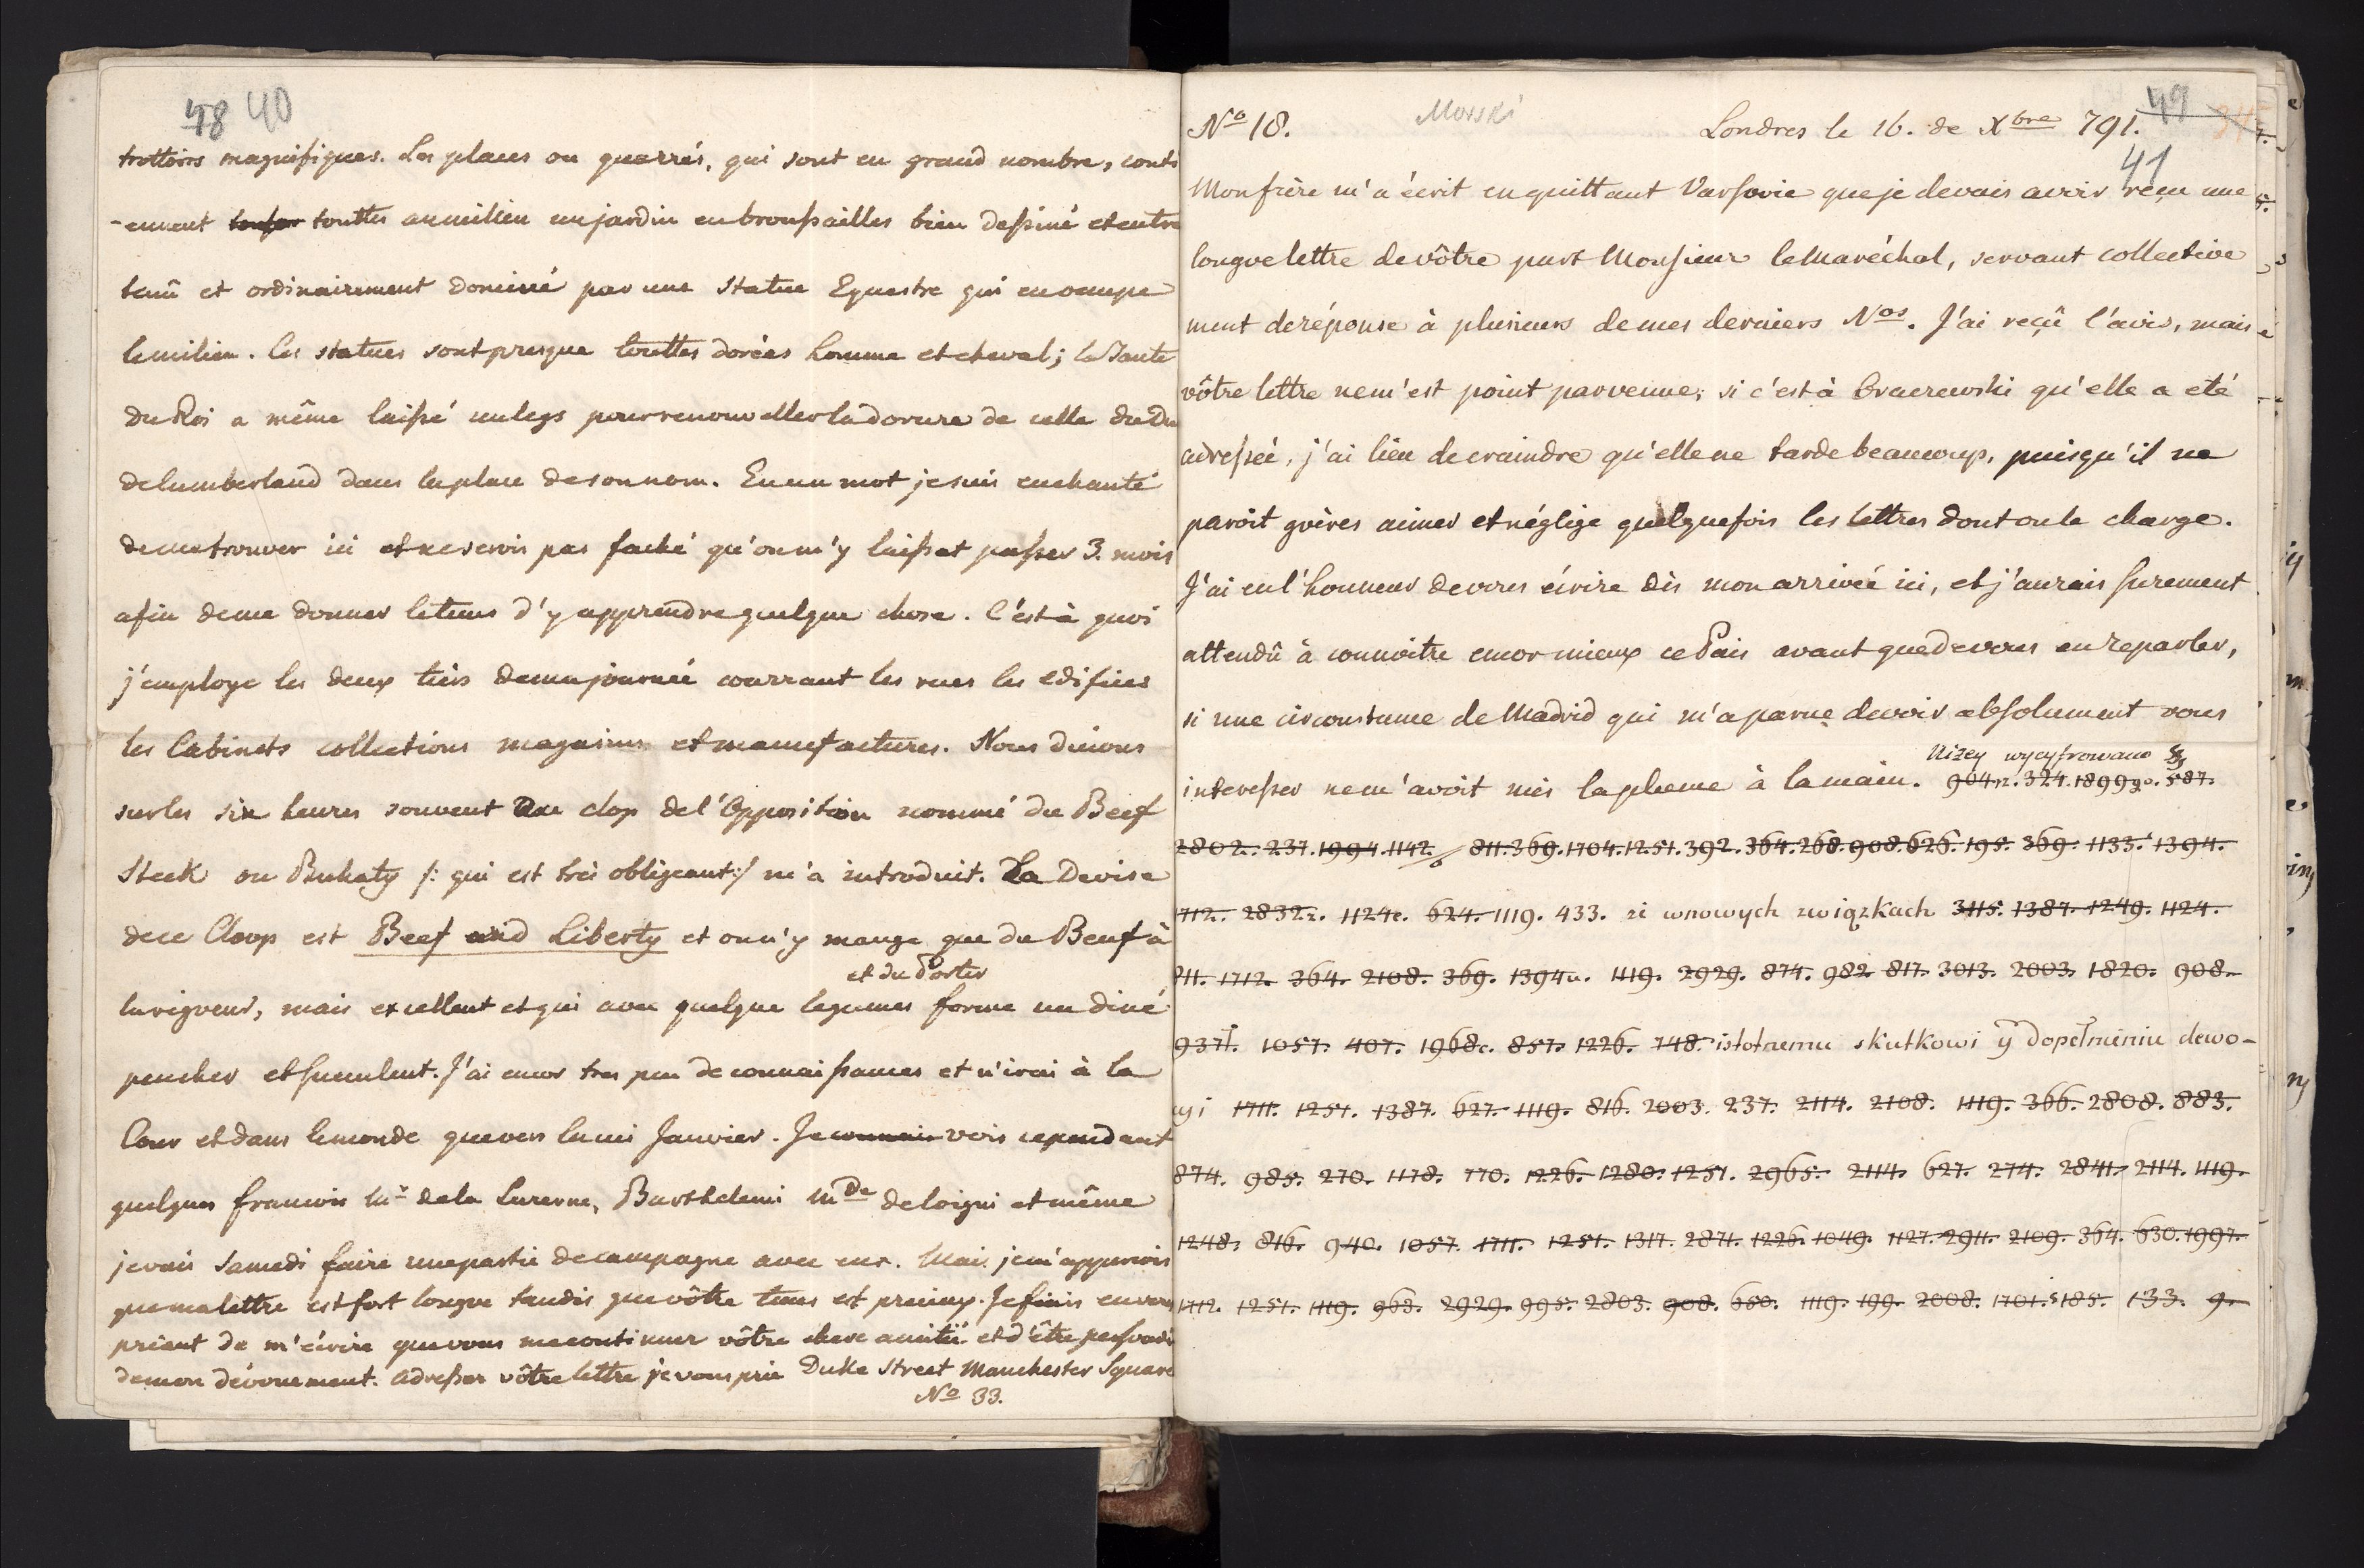 48 40
trottoirs magnifiques. Les places ou quarrés, qui sont en grand nombre, conti
-ennent touttes au milieu un jardin en broussailles bien dessiné et entre
tenû et ordinairement dominé par une statue Equestre qui en occupe
le milieu. Ces statues sont presque touttes dorées homme et cheval; la Tante
du Roi a même laissé un legs pour renouveller la dorure de celle du Du
de Cumberland dans la place de son nom. En un mot je suis enchanté
de me trouver ici et ne serois pas faché qu'on m'y laissat passer 3. mois
afin de me donner le tems d'y apprendre quelque chose. C'est à quoi
j'employe les deux tiers de ma journée courrant les rues les edifices
les Cabinets collections magasins et manufactures. Nous dinons
sur les six heures souvent au clop de l'Opposition nommé du Beef
Steek ou Bukaty /: qui est très obligeant :/ m'a introduit. La Devise
de ce Cloop est Beef and Liberty et on n'y mange que du Beuf à
et du Porter
la rigveur, mais excellent et qui avec quelque legumes forme un diné
peu cher et succulent. J'ai encor tres peu de connaissances et n'irai à la
Cour et dans le monde que vers la mi Janvier. Je connais vois cependant
quelques francois Mr de la Luzerne, Barthelemi Mde de loigni et même
je vais Samedi faire une partie de campagne avec eux. Mais je m'apperçois
que ma lettre est fort longve tandis que vôtre tems est precieux. Je finis en vous
priant de m'écrire que vous me continuer vôtre chere amitié et d'être persvadé
de mon dévouement. Adresser vôtre lettre je vous prie Duke Street Manchester Square
No 33.
No 18. Morski Londres le 16. de Xbre 791. 49
41
Mon frère m'a écrit en quittant Varsovie que je devais avoir reçu une
longve lettre de vôtre part Monsieur le Maréchal, servant collective
ment de réponse à plusieurs de mes derniers Nos. J'ai reçû l'avis, mais
vôtre lettre ne m'est point parvenue; si c'est à qu'elle a eté
adressée, j'ai lieu de craindre qu'elle ne tarde beaucoup, puisqu'il ne
paroît gvères aimer et néglige quelquefois les lettres dont on le charge.
J'ai eu l'honneur de vous écrire dès mon arrivée ici, et j'aurais surement
attendû à connoitre encor mieux ce Païs avant que de vous en reparler,
si une circonstance de Madrid qui m'a parue devoir absolument vous
Niżey wycyfrowano
interesser ne m'avoit mis la plume à la main. 904n. 324. 1899go. 587.
2802. 237. 1994. 1142. 811. 369. 1704. 1251. 392. 364. 268. 908. 626. 195. 369. 1133. 1394.
1712. 2832z. 1124e. 624. 1119. 433. zi wnowych związkach 3115. 1387. 1249. 1124.
811. 1712. 364. 2108. 369. 1394u. 1119. 2929. 874. 982. 817. 3013. 2003. 1820. 908.
937t. 1057. 407. 1968c. 857. 1226. 748. istotnemu skutkowi ÿ Dopełnieniu dewo-
cyi 1711. 1251. 1387. 627. 1119. 816. 2003. 237. 2114. 2108. 1119. 366. 2808. 883.
874. 985. 270. 1178. 770. 1226. 1280. 1251. 2965. 2114. 627. 274. 2841. 2114. 1119.
1248. 816. 940. 1057. 1711. 1251. 1317. 2871. 1226. 1049. 1127. 2911. 2109. 364. 630. 1997.
1712. 1251. 1119. 963. 2929. 995. 2803. 908. 650. 1119. 199. 2008. 1701.s 185. 133. 9.